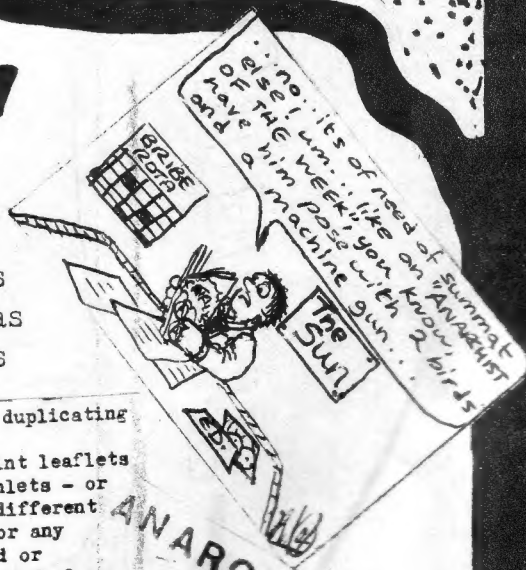 ...no, its of need of summat
else! um... like an "ANARCHIST
OF THE WEEK", you know,
have him pose with 2 birds
and a machine gun...
BRIBE
ROTA
The
Sun
ED.
s
as
s
duplicating
int leaflets
hlets - or
different
or any
d or
ANARC